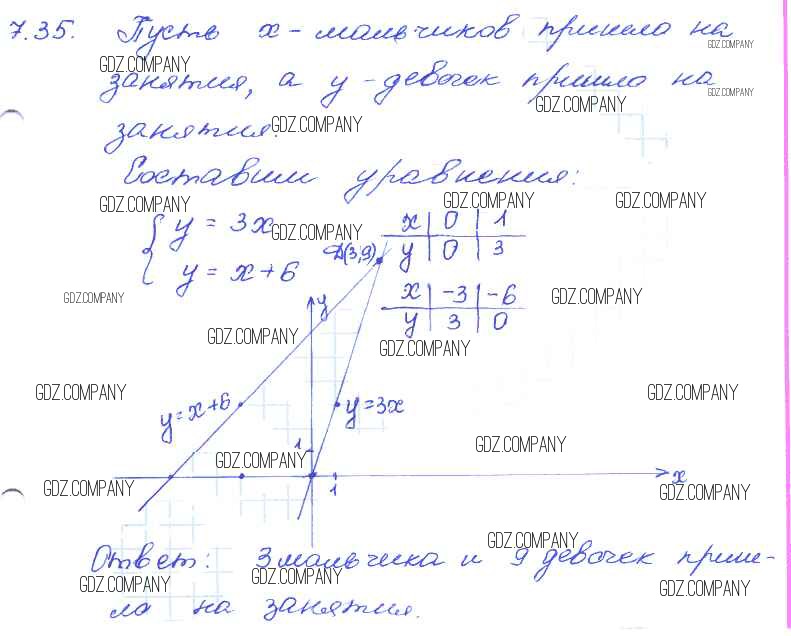 7.35. Пусть x - мальчиков пришло на
GDZ.COMPANY
GDZ.COMPANY
занятия, а y - девочек пришло на
GDZ.COMPANY
GDZ.COMPANY
занятия. GDZ.COMPANY
Составим уравнения:
GDZ.COMPANY GDZ.COMPANY GDZ.COMPANY
{ y = 3x GDZ.COMPANY
y = x + 6
x | 0 | 1
y | 0 | 3
D(3,9)
GDZ.COMPANY GDZ.COMPANY
x | -3 | -6
y | 3 | 0
y
GDZ.COMPANY GDZ.COMPANY
GDZ.COMPANY GDZ.COMPANY
y = x + 6
y = 3x
GDZ.COMPANY
1
GDZ.COMPANY
x
GDZ.COMPANY 1 GDZ.COMPANY
GDZ.COMPANY
Ответ: 3 мальчика и 9 девочек приш-
GDZ.COMPANY GDZ.COMPANY GDZ.COMPANY
ло на занятия.